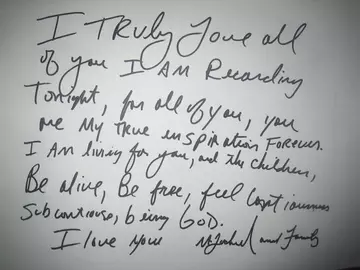 I TRULY Love all
of you I AM Recording
Tonight, for all of you, you
are My True inspiration Forever.
I AM living for you, and the children,
Be alive, Be free, feel
Subcontiouse, being GOD.
I love you and Family